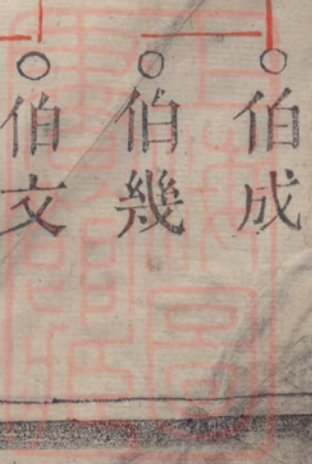 ○伯成
○伯幾
○伯文